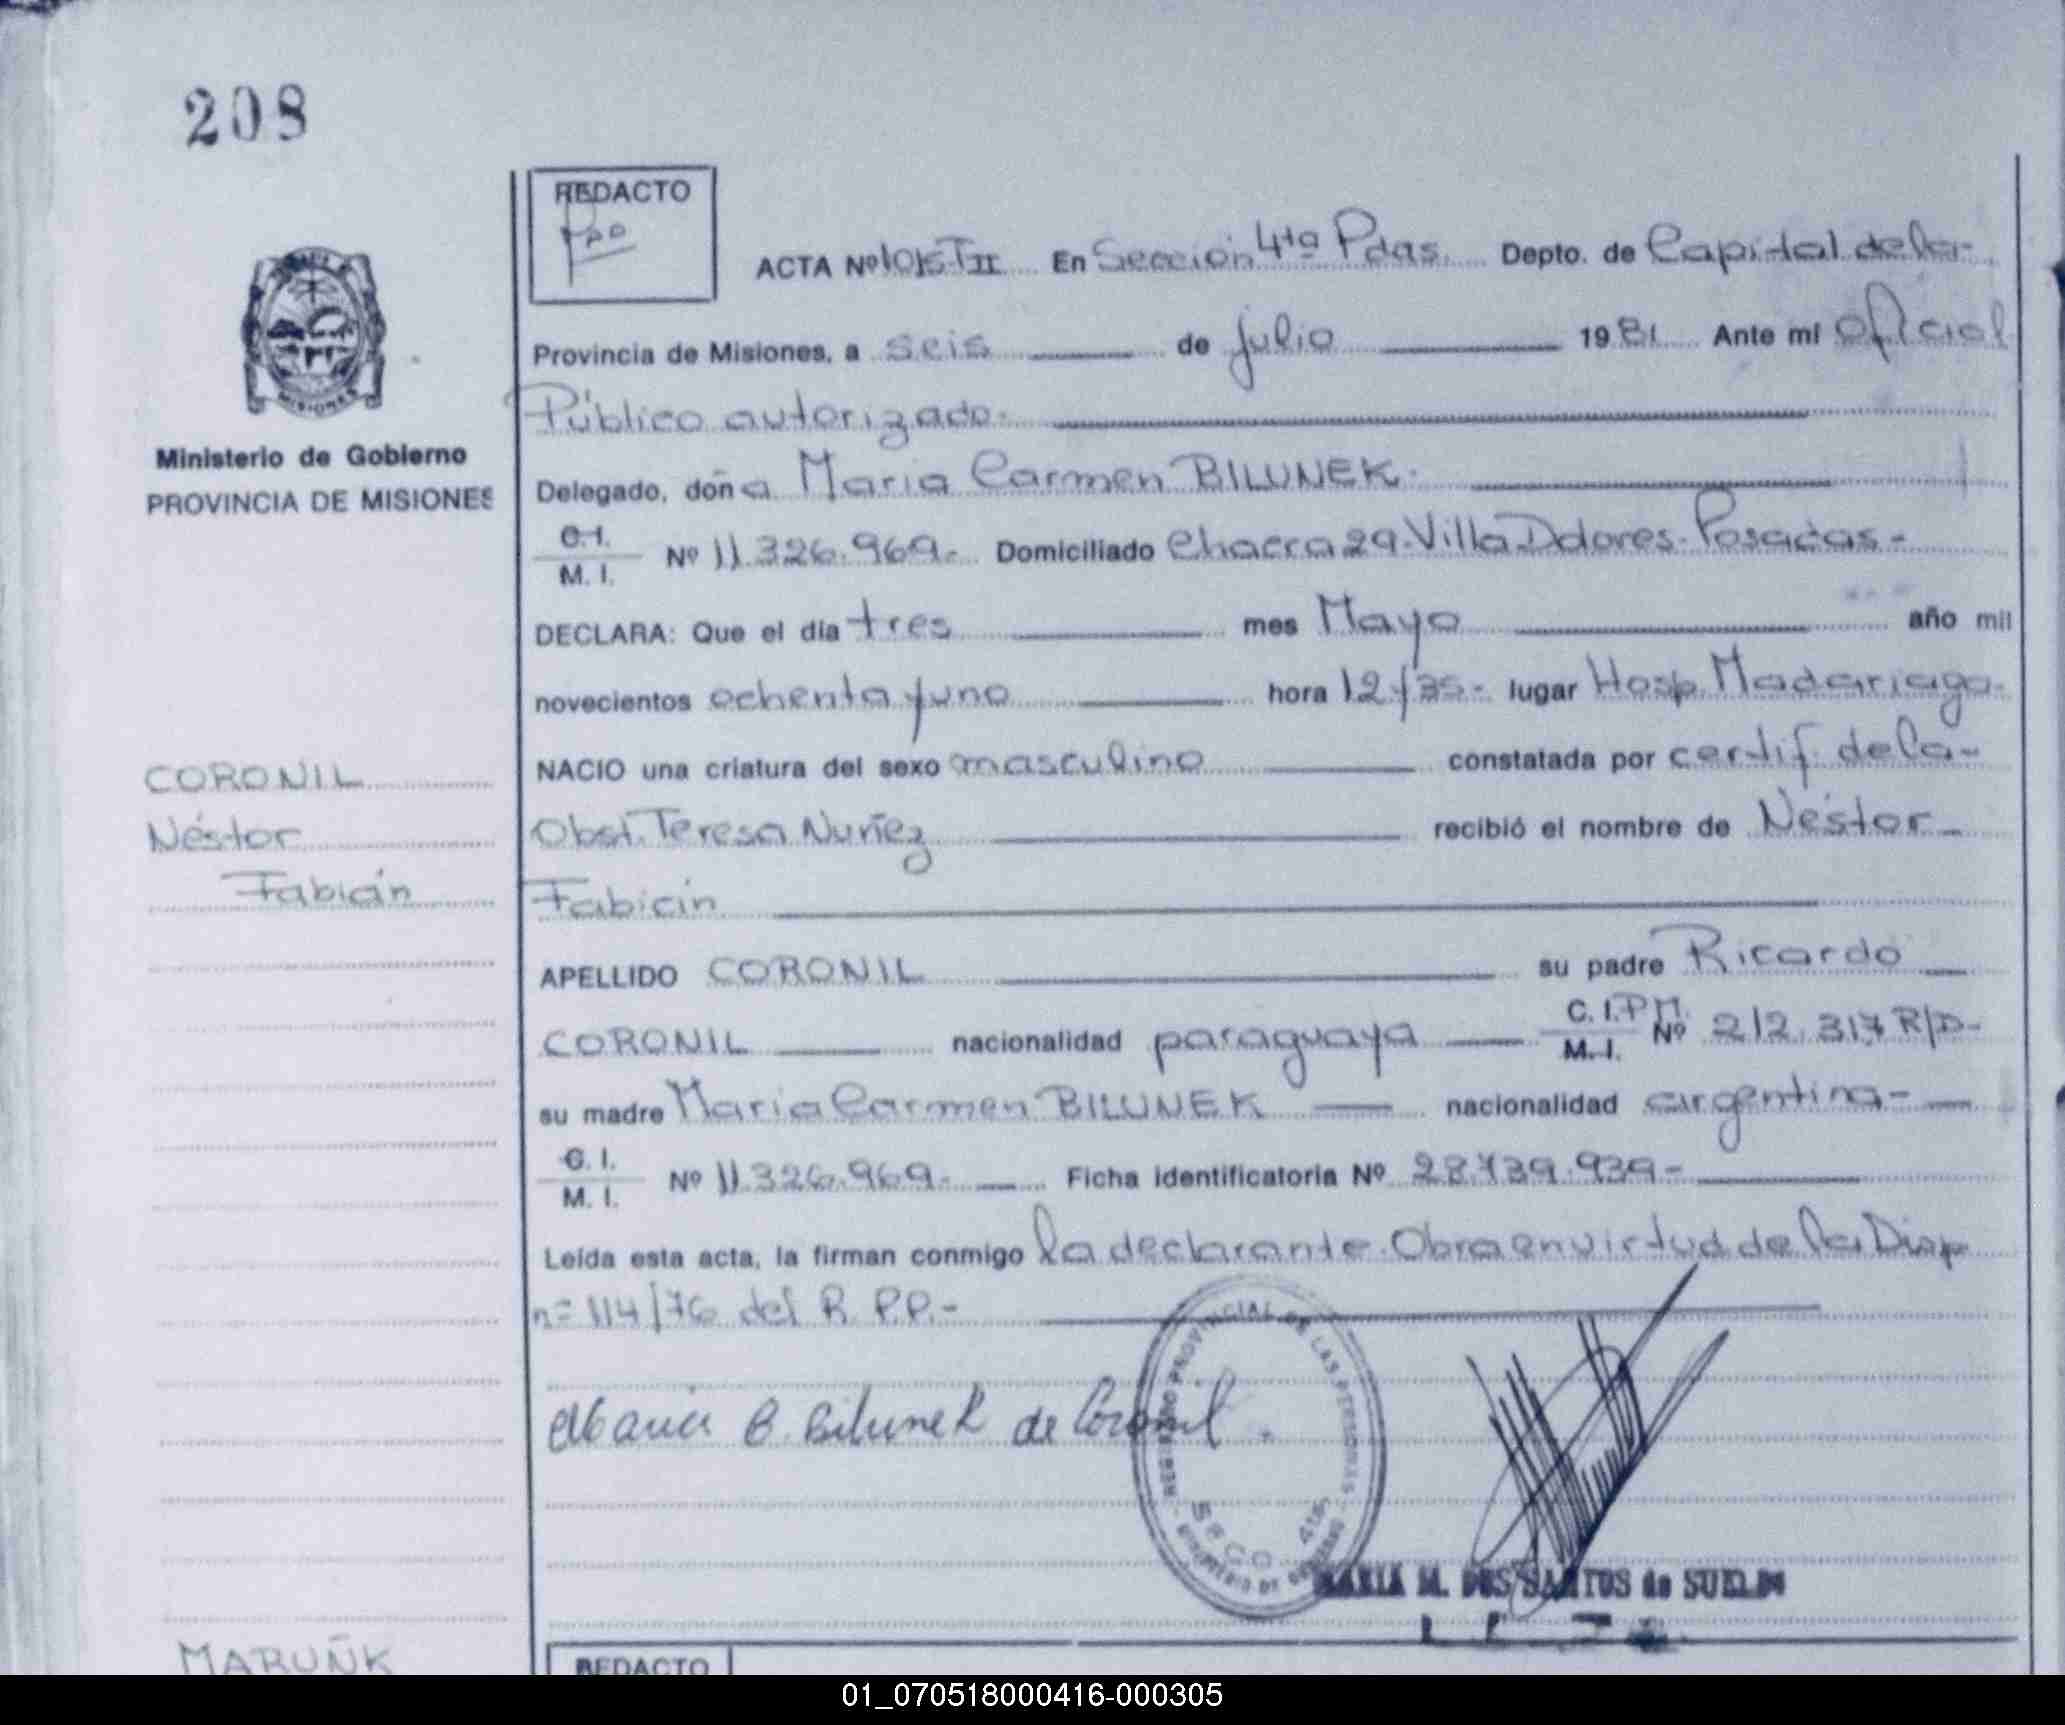 208
REDACTO
ACTA Nº 1015 TII En Sección 4ta Pdas. Depto. de Capital de la-
Provincia de Misiones, a seis de julio 1981 Ante mí Oficial
Público autorizado.
Ministerio de Gobierno
PROVINCIA DE MISIONES
MISIONES
Delegado, doña Maria Carmen BILUNEK.
C.I. M. I. Nº 11.326.969.- Domiciliado Chacra 29-Villa Dolores-Posadas-
DECLARA: Que el día tres mes Mayo año mil
novecientos ochenta y uno hora 12y35- lugar Hosp. Madariaga-
NACIO una criatura del sexo masculino constatada por certif. de la-
Obst. Teresa Nuñez recibió el nombre de Néstor
Fabián
CORONIL
Néstor
Fabián
APELLIDO CORONIL su padre Ricardo
CORONIL nacionalidad paraguaya C. I. P M. M. I. Nº 212.317 R/D-
su madre Maria Carmen BILUNEK nacionalidad argentina-
C. I. M. I. Nº 11.326.969.- Ficha identificatoria Nº 28.739.939-
Leída esta acta, la firman conmigo la declarante. Obra en virtud de la Disp
n= 114/76 del R. P.P.-
Maria C. Bilunek de Coronil
REGISTRO PROVINCIAL DE LAS PERSONAS
MINISTERIO DE GOBIERNO
SECC 4ta
MARIA M. DOS SANTOS de SUELDO
MARUÑK
REDACTO
01_070518000416-000305